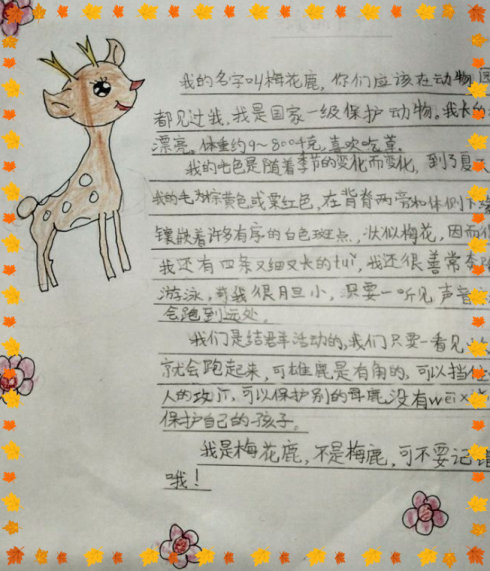 我的名字叫梅花鹿，你们应该在动物园
都见过我，我是国家一级保护动物。我长的
漂亮。体重约9~80千克，喜欢吃草。
我的毛色是随着季节的变化而变化，到了夏天
我的毛为棕黄色或栗红色，在背脊两旁和体侧下
镶嵌着许多有序的白色斑点，状似梅花，因而
我还有四条又细又长的tuǐ，我还很善常奔跑
游泳，可我很月旦小，只要一听见声音
会跑到远处。
我们是结群活动的，我们只要一看见
就会跑起来，可雄鹿是有角的，可以挡住
人的攻，可以保护别的母鹿没有wēi
保护自己的孩子。
我是梅花鹿，不是梅鹿，可不要记错
哦！